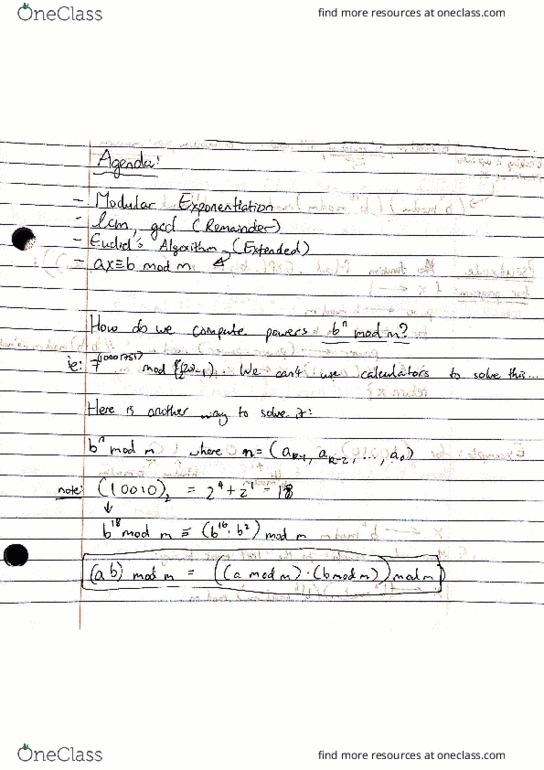 OneClass find more resources at oneclass.com
Agenda:
- Modular Exponentiation
- lcm, gcd (Remainder)
- Euclid's Algorithm (Extended)
- ax≡b mod m
How do we compute powers bⁿ mod m?
ie: mod. We can't use calculators to solve this...
Here is another way to solve it:
bⁿ mod m, where n = (aₖ₋₁, aₖ₋₂, ..., a₀)
note: (10010)₂ = 2⁴ + 2¹ = 18
↓
b¹⁸ mod m ≡ (b¹⁶ · b²) mod m
(ab) mod m = ((a mod m) · (b mod m)) mod m
OneClass find more resources at oneclass.com